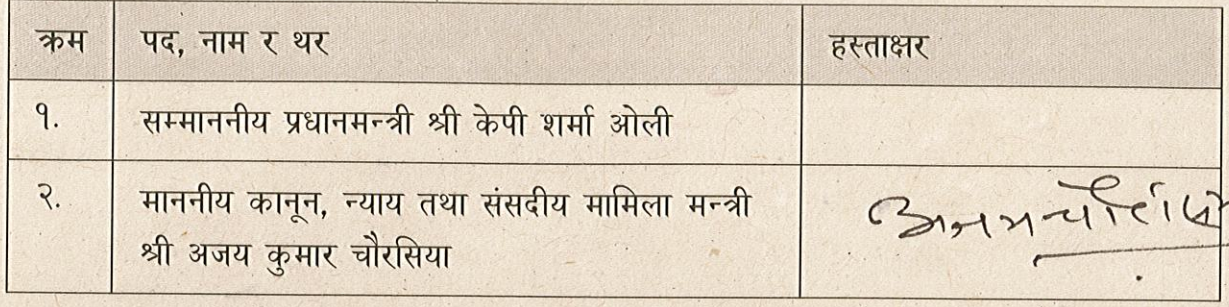 क्रम पद, नाम र थर हस्ताक्षर
१. सम्माननीय प्रधानमन्त्री श्री केपी शर्मा ओली
२. माननीय कानून, न्याय तथा संसदीय मामिला मन्त्री
श्री अजय कुमार चौरसिया